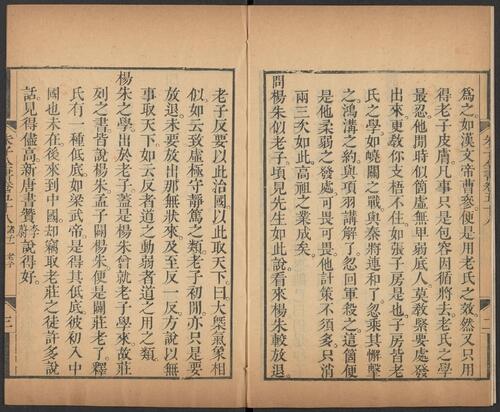 為之如漢文帝曹參便是用老氏之效然又只用
得老子皮膚凡事只是包容因循將去老氏之學
最忍他閒時似箇虛無卑弱底人莫教緊要處發
出來更教你支梧不住如張子房是也子房皆老
氏之學如嶢關之戰與秦將連和了忽乘其懈擊
之鴻溝之約與項羽講解了忽回軍殺之這箇便
是他柔弱之發處可畏可畏他計策不須多只消
兩三次如此高祖之業成矣
問楊朱似老子頃見先生如此說看來楊朱較放退
老子反要以此治國以此取天下曰大槩氣象相
似如云致虛極守靜篤之類老子初閒亦只是要
放退未要放出那無狀來及至反一反方說以無
事取天下如云反者道之動弱者道之用之類
楊朱之學出於老子蓋是楊朱曾就老子學來故莊
列之書皆說楊朱孟子闢楊朱便是闢莊老了釋
氏有一種低底如梁武帝是得其低底彼初入中
國也未在後來到中國却竊取老莊之徒許多說
話見得儘高新唐書贊李蔚說得好